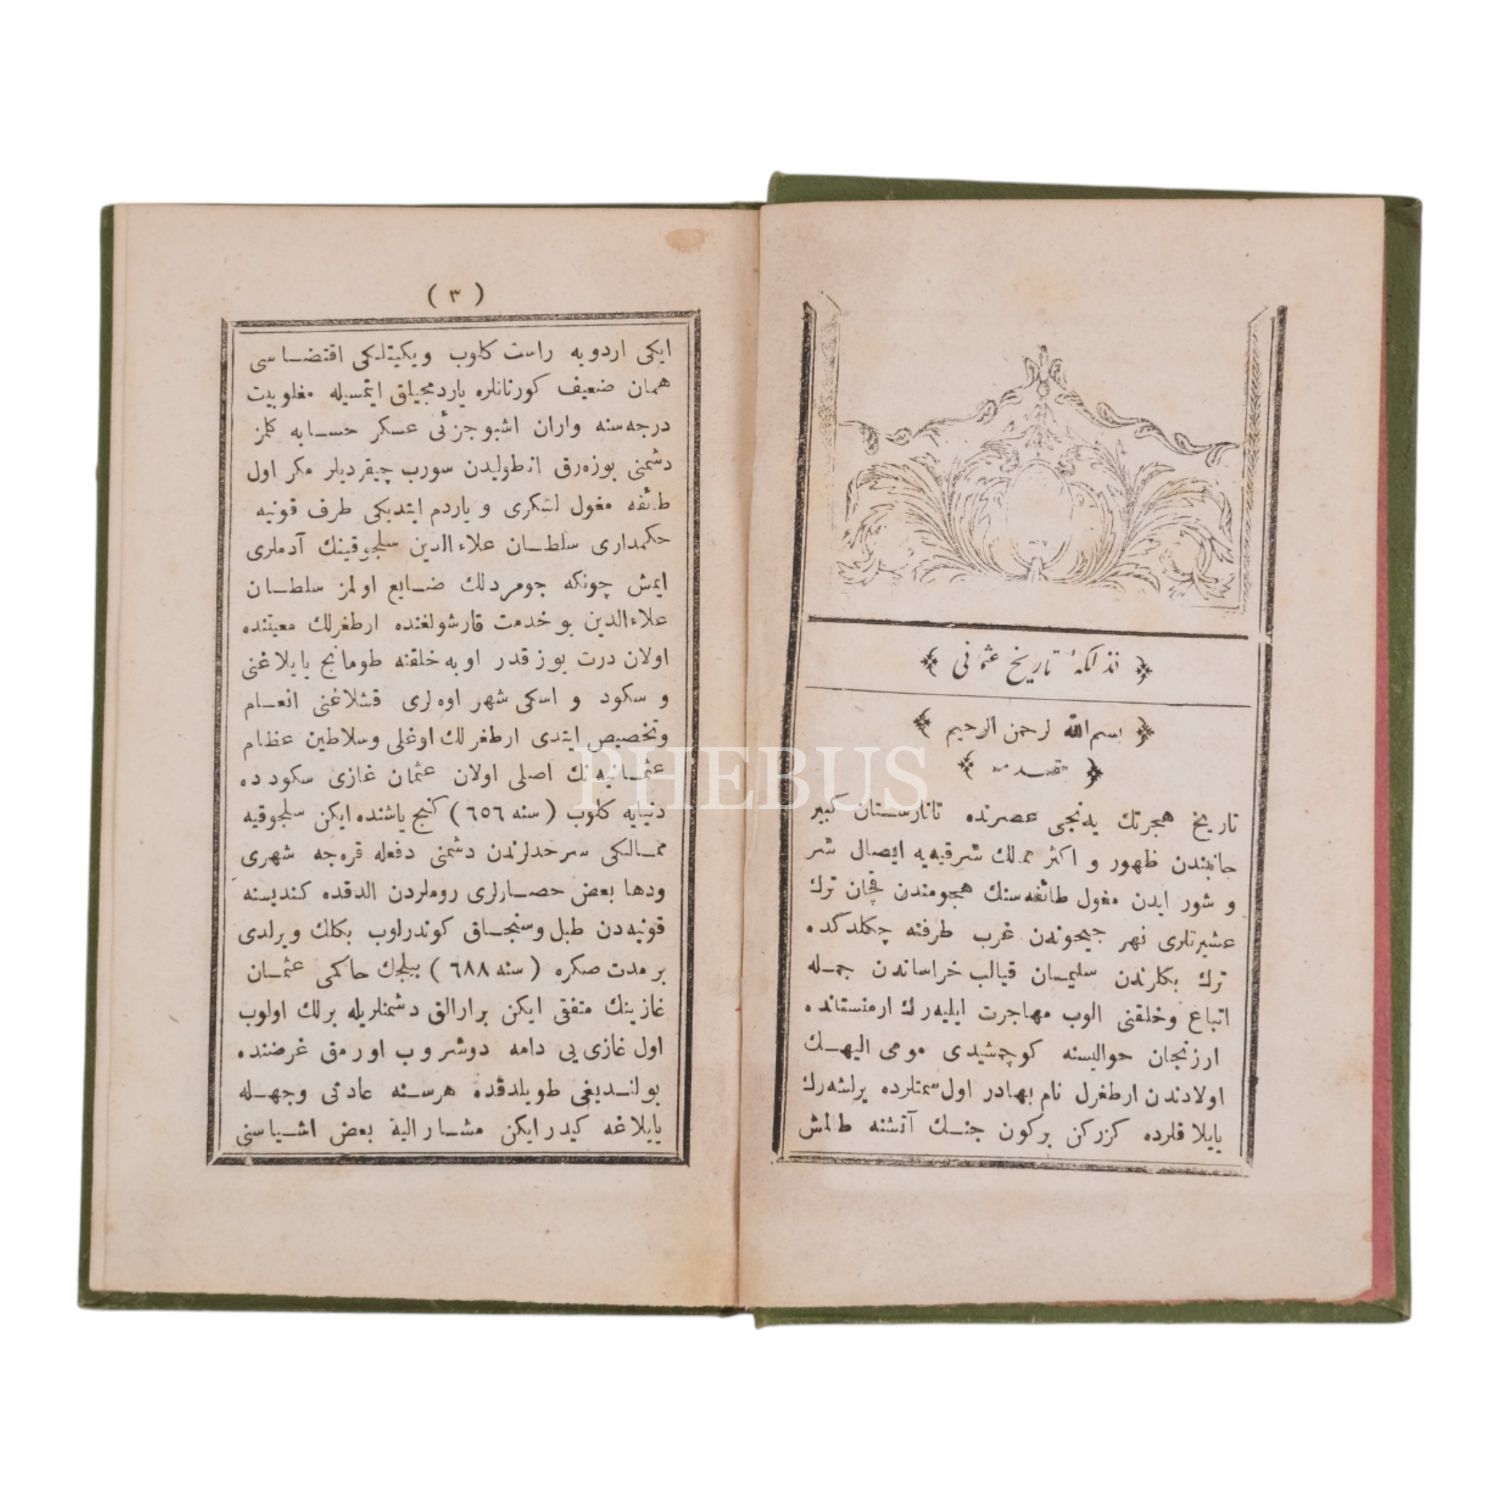 ﴿ فذلكهٔ تاريخ عثمانى ﴾
﴿ بسم الله الرحمن الرحيم ﴾
﴿ مقدمه ﴾
تاريخ هجرتك يدنجى عصرنده تاتارستان كبير
جانبندن ظهور و اكثر ممالك شرقيه‌يه ايصال شر
و شور ايدن مغول طائفه‌سنك هجومندن قچان ترك
عشيرتلرى نهر جيحوندن غرب طرفنه چكلدكده
ترك بكلرندن سليمان قيالب خراساندن جمله
اتباع وخلقنى الوب مهاجرت ايليه‌رك ارمنستانده
ارزنجان حواليسنه كوچمشيدى مومى اليهك
اولادندن ارطغرل نام بهادر اول سمتلرده يرلشه‌رك
يايلاقلرده كزركن بركون جنك آتشنه طالمش
( ٣ )
ايكى اردويه راست كلوب ويكيتلكى اقتضاسى
همان ضعيف كورنانلره ياردمجيلق ايتمسيله مغلوبيت
درجه‌سنه واران اشبو جزئى عسكر حسابه كلمز
دشمنى بوزه‌رق انطوليدن سورب چيقرديلر مكر اول
طائفه مغول لشكرى و ياردم ايتديكى طرف قونيه
حكمدارى سلطان علاءالدين سلجوقينك آدملرى
ايمش چونكه جومردلك ضايع اولمز سلطان
علاءالدين بو خدمت قارشولغنده ارطغرلك معيتنده
اولان درت يوز قدر اوبه خلقنه طومانج يايلاغنى
و سكود و اسكى شهر اوه‌لرى قشلاغنى انعام
وتخصيص ايتدى ارطغرلك اوغلى وسلاطين عظام
عثمانيه‌نك اصلى اولان عثمان غازى سكودده
دنيايه كلوب ( سنه ٦٥٦ ) كنج ياشنده ايكن سلجوقيه
ممالكى سرحدلرندن دشمنى دفعله قره‌جه شهرى
ودها بعض حصارلرى روملردن الدقده كنديسنه
قونيه‌دن طبل وسنجاق كوندراوب بكلك ويرلدى
بر مدت صكره ( سنه ٦٨٨ ) بيلجك حاكمى عثمان
غازينك متفقى ايكن برارالق دشمنلريله برلك اولوب
اول غازى يى دامه دوشروب اورمق غرضنده
بولنديغى طويلدقده هرسنه عادتى وجهله
يايلاغه كيدرايكن مشار اليه بعض اشياسنى
PHEBUS